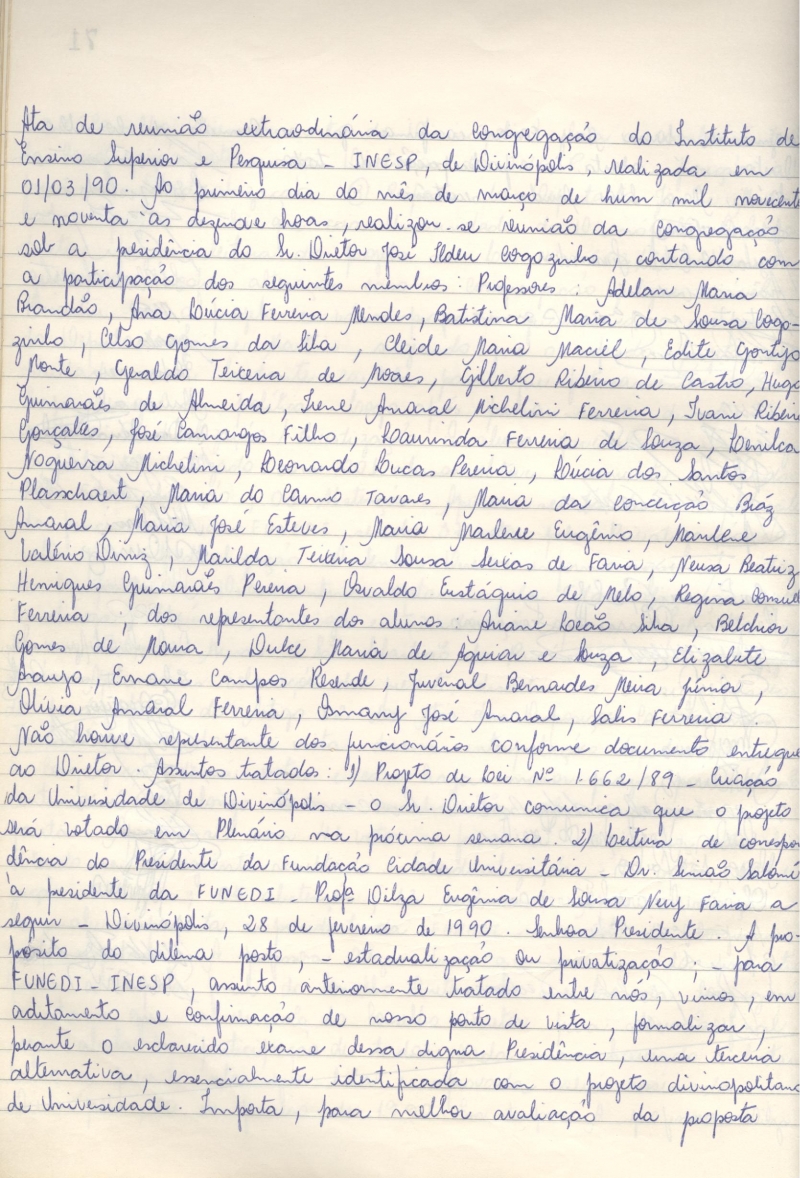 Ata de reunião extraordinária da congregação do Instituto de
Ensino Superior e Pesquisa - INESP, de Divinópolis, realizada em
01/03/90. Ao primeiro dia do mês de março de hum mil novecent
e noventa às dezenove horas, realizou-se reunião da congregação
sob a presidência do Sr. Diretor José Ildeu Cogozinho, contando com
a participação dos seguintes membros: Professores: Adelan Maria
Brandão, Ana Lúcia Ferreira Mendes, Batistina Maria de Sousa Cogo-
zinho, Celso Gomes da Silva, Cleide Maria Maciel, Edite Gontijo
Monte, Geraldo Teixeira de Moraes, Gilberto Ribeiro de Castro, Hugo
Guimarães de Almeida, Irene Amaral Michelini Ferreira, Ivani Ribeir
Gonçalves, José Camargos Filho, Laurinda Ferreira de Souza, Lenilca
Nogueira Michelini, Leonardo Lucas Pereira, Lúcia dos Santos
Plasschaert, Maria do Carmo Tavares, Maria da Conceição Bráz
Amaral, Maria José Esteves, Maria Marlene Eugênio, Marlene
Valério Diniz, Marilda Teixeira Sousa Seixas de Faria, Neusa Beatriz
Henriques Guimarães Pereira, Osvaldo Eustáquio de Melo, Regina Consuel
Ferreira; dos representantes dos alunos: Ariane Leão Silva, Belchior
Gomes de Moura, Dulce Maria de Aguiar e Souza, Elizabete
Araujo, Ernane Campos Resende, Juvenal Bernardes Meira Júnior,
Olívia Amaral Ferreira, Osmany José Amaral, Salis Ferreira.
Não houve representante dos funcionários conforme documento entregue
ao Diretor. Assuntos tratados: 1) Projeto de Lei Nº 1.662/89 - Criação
da Universidade de Divinópolis - o Sr. Diretor comunica que o projeto
será votado em Plenário na próxima semana. 2) Leitura de correspon
dência do Presidente da Fundação Cidade Universitária - Dr. Simão Salomé
à presidente da FUNEDI - Profª Dilza Eugênia de Sousa Nery Faria a
seguir - Divinópolis, 28 de fevereiro de 1990. Senhora Presidente. A pro-
pósito do dilema posto, - estadualização ou privatização; - para
FUNEDI-INESP, assunto anteriormente tratado entre nós, vimos, em
aditamento e confirmação de nosso ponto de vista, formalizar,
perante o esclarecido exame dessa digna Presidência, uma terceira
alternativa, essencialmente identificada com o projeto divinopolitano
de Universidade. Importa, para melhor avaliação da proposta